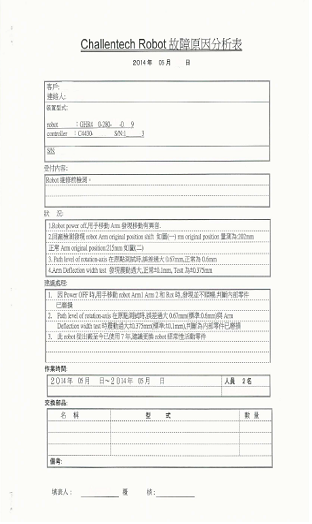 Challentech Robot 故障原因分析表
2014年 05月 日
客戶:
連絡人:
裝置型式:
robot : GHR4 0-280- -0 9
controller : C4430- S/N:1 3
NTS
受付內容:
Robot 維修檢測。
狀 況:
1.Robot power off,用手移動 Arm 發現移動有異音.
2.回廠檢測發現 robot Arm original position shift 如圖(一) rm original position 量測為:202mm
正常 Arm original position:215mm 如圖(二)
3. Path level of rotation-axis 在原點測試時,誤差過大 0.67mm,正常為 0.6mm
4.Arm Deflection width test 發現震動過大,正常±0.1mm, Test 為±0.375mm
建議處理:
1. 因 Power OFF 時,用手移動 robot Arm1 Arm 2 和 Rot 時,發現並不順暢,判斷內部零件
已磨損
2. Path level of rotation-axis 在原點測試時,誤差過大 0.67mm(標準:0.6mm)與 Arm
Deflection width test 時震動過大±0.375mm(標準:±0.1mm),判斷為內部零件已磨損
3. 此 robot 從出廠至今已使用 7 年,建議更換 robot 經常性活動零件
作業時間:
2014年 05月 日~2014年 05月 日 人員 2名
交換部品:
名 稱 型 式 數 量
備考:
填表人: 覆 核: